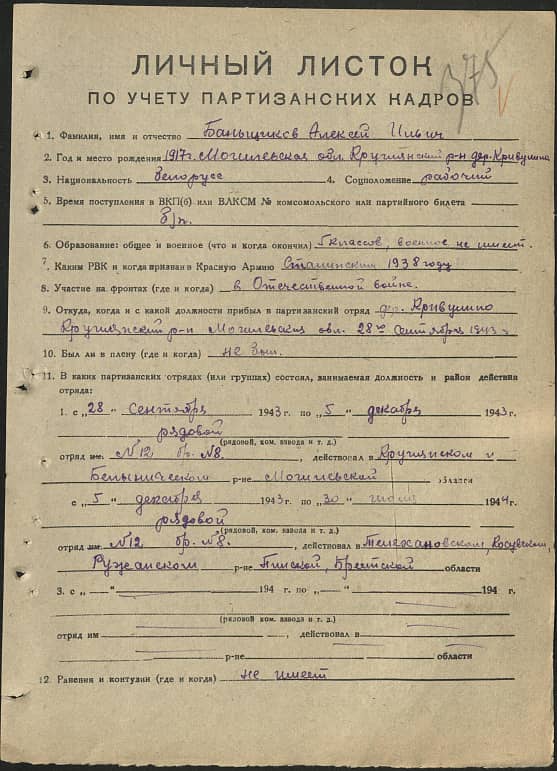 375
ЛИЧНЫЙ ЛИСТОК
ПО УЧЕТУ ПАРТИЗАНСКИХ КАДРОВ
1. Фамилия, имя и отчество Баньщиков Алексей Ильич
2. Год и место рождения 1917г. Могилевская обл. Круглянский р-н дер. Кривулино
3. Национальность белорусс 4. Соцположение рабочий
5. Время поступления в ВКП(б) или ВЛКСМ № комсомольского или партийного билета
б/п.
6. Образование: общее и военное (что и когда окончил) 5 классов, военное не имеет.
7. Каким РВК и когда призван в Красную Армию Сталинским 1938 году
8. Участие на фронтах (где и когда) в Отечественной войне.
9. Откуда, когда и с какой должности прибыл в партизанский отряд дер. Кривулино
Круглянский р-н Могилевская обл. 28го Сентября 1943 г
10. Был ли в плену (где и когда) не был.
11. В каких партизанских отрядах (или группах) состоял, занимаемая должность и район действия
отряда:
1. с „28" Сентября 1943 г. по „5" декабря 1943 г.
рядовой
(рядовой, ком. взвода и т. д.)
отряд им. №12 бр. №8. , действовал в Круглянском и
Белыническом р-не Могилевской области
с „5" декабря 1943 г. по „30" июня 1944 г.
рядовой
(рядовой, ком. взвода и т. д.)
отряд им. №12 бр. №8. , действовал в Телехановском,
Ружанском р-не Пинской, Брестской области
3. с „ " 194 г. по „ " 194 г.
(рядовой ком. взвода и т. д.)
отряд им , действовал в
р-не области
12. Ранения и контузии (где и когда) не имеет